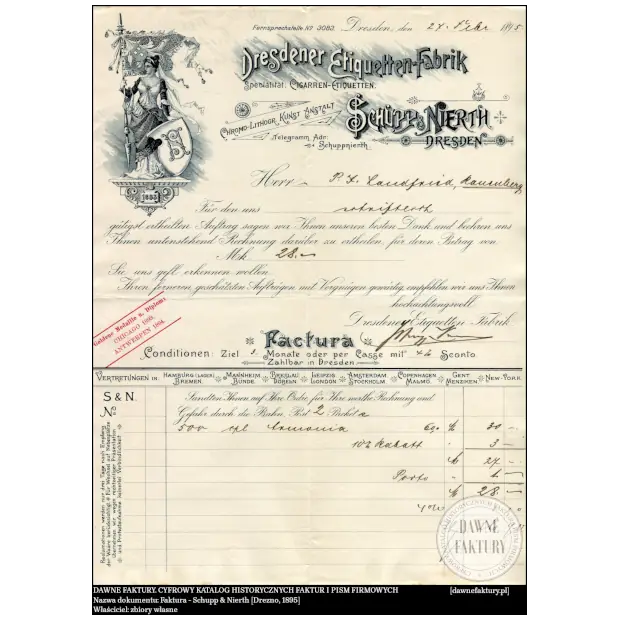 Fernsprechstelle No 3083. Dresden, den 24. Febr 1895
Dresdener Etiquetten-Fabrik
Specialität: CIGARREN-ETIQUETTEN.
CHROMO-LITHOGR. KUNST ANSTALT
SCHUPP & NIERTH
DRESDEN
Telegramm Adr:
Schuppnierth.
N
1893
Herr P. J. Landfried, Rauenberg
Für den uns
gütigst ertheilten Auftrag sagen wir Ihnen unseren besten Dank und beehren uns
Ihnen untenstehend Rechnung darüber zu ertheilen, für deren Betrag von
Mk. 28.—
Sie uns gefl. erkennen wollen.
Ihren ferneren, geschätzten Aufträgen mit Vergnügen gewärtig, empfehlen wir uns Ihnen
hochachtungsvoll
Dresdener Etiquetten Fabrik
Goldene Medaille u. Diplom
CHICAGO 1893.
ANTWERPEN 1894.
Factura
Conditionen: Ziel Monate oder per Casse mit % Sconto.
Zahlbar in Dresden
VERTRETUNGEN IN: HAMBURG (LAGER) BREMEN. MANNHEIM BÜNDE. BRESLAU DÖBELN. LEIPZIG LONDON. AMSTERDAM STOCKHOLM. COPENHAGEN MALMÖ. GENT MENZIKEN. NEW-YORK.
S & N.
No
Sandten Ihnen auf Ihre Ordre für Ihre werthe Rechnung und
Gefahr durch die Bahn Post 2
500 cpl Armonia 60 % 30 —
10% Rabatt " 3 —
27 —
Porto " 1 —
28 —
Reclamationen werden nur drei Tage nach Empfang
der Waare berücksichtigt. Für Wechsel auf Nebenplätze
übernehmen wir wegen rechtzeitiger Präsentation
und Protestaufnahme keinerlei Verbindlichkeit
DAWNE
FAKTURY
DAWNE FAKTURY. CYFROWY KATALOG HISTORYCZNYCH FAKTUR I PISM FIRMOWYCH [dawnefaktury.pl]
Nazwa dokumentu: Faktura - Schupp & Nierth [Drezno, 1895]
Właściciel: zbiory własne